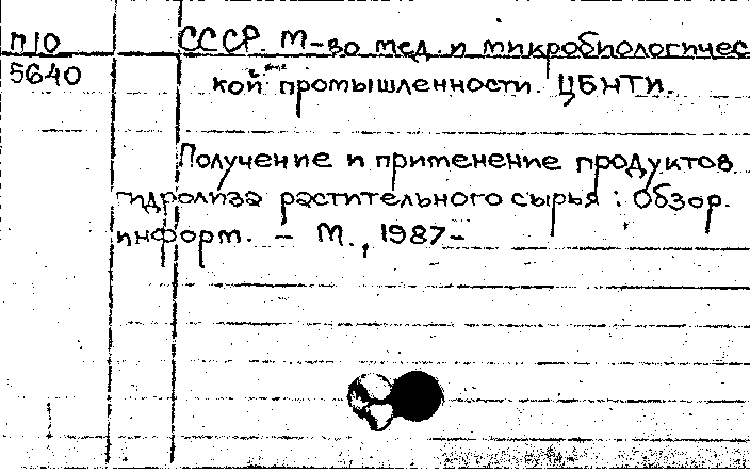 П10
5640
СССР. М-во мед. и микробиологичес
кой промышленности. ЦБНТИ.
Получение и применение продуктов
гидролиза растительного сырья : Обзор.
информ. - М., 1987-